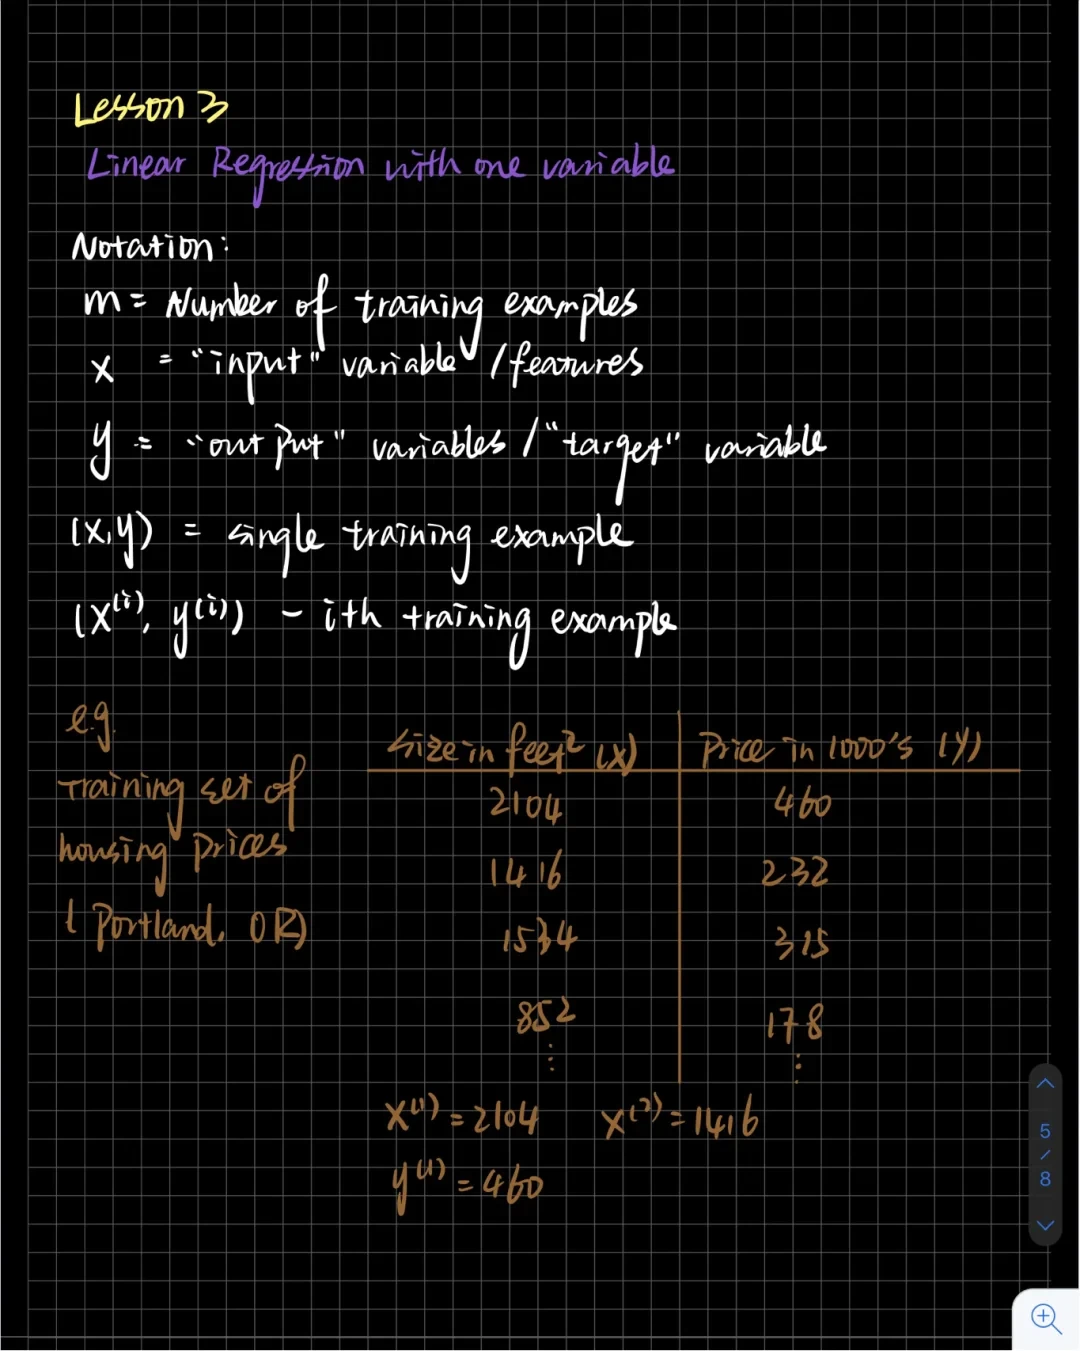 Lesson 3
Linear Regression with one variable
Notation:
m = Number of training examples
x = "input" variable / features
y = "output" variables / "target" variable
(x,y) = single training example
(x⁽ⁱ⁾, y⁽ⁱ⁾) - ith training example
e.g.
training set of
housing prices
( Portland, OR)
size in feet² (x) | Price in 1000's (y)
2104 | 460
1416 | 232
1534 | 315
852 | 178
⋮ | ⋮
x⁽¹⁾ = 2104 x⁽²⁾ = 1416
y⁽¹⁾ = 460
5
/
8